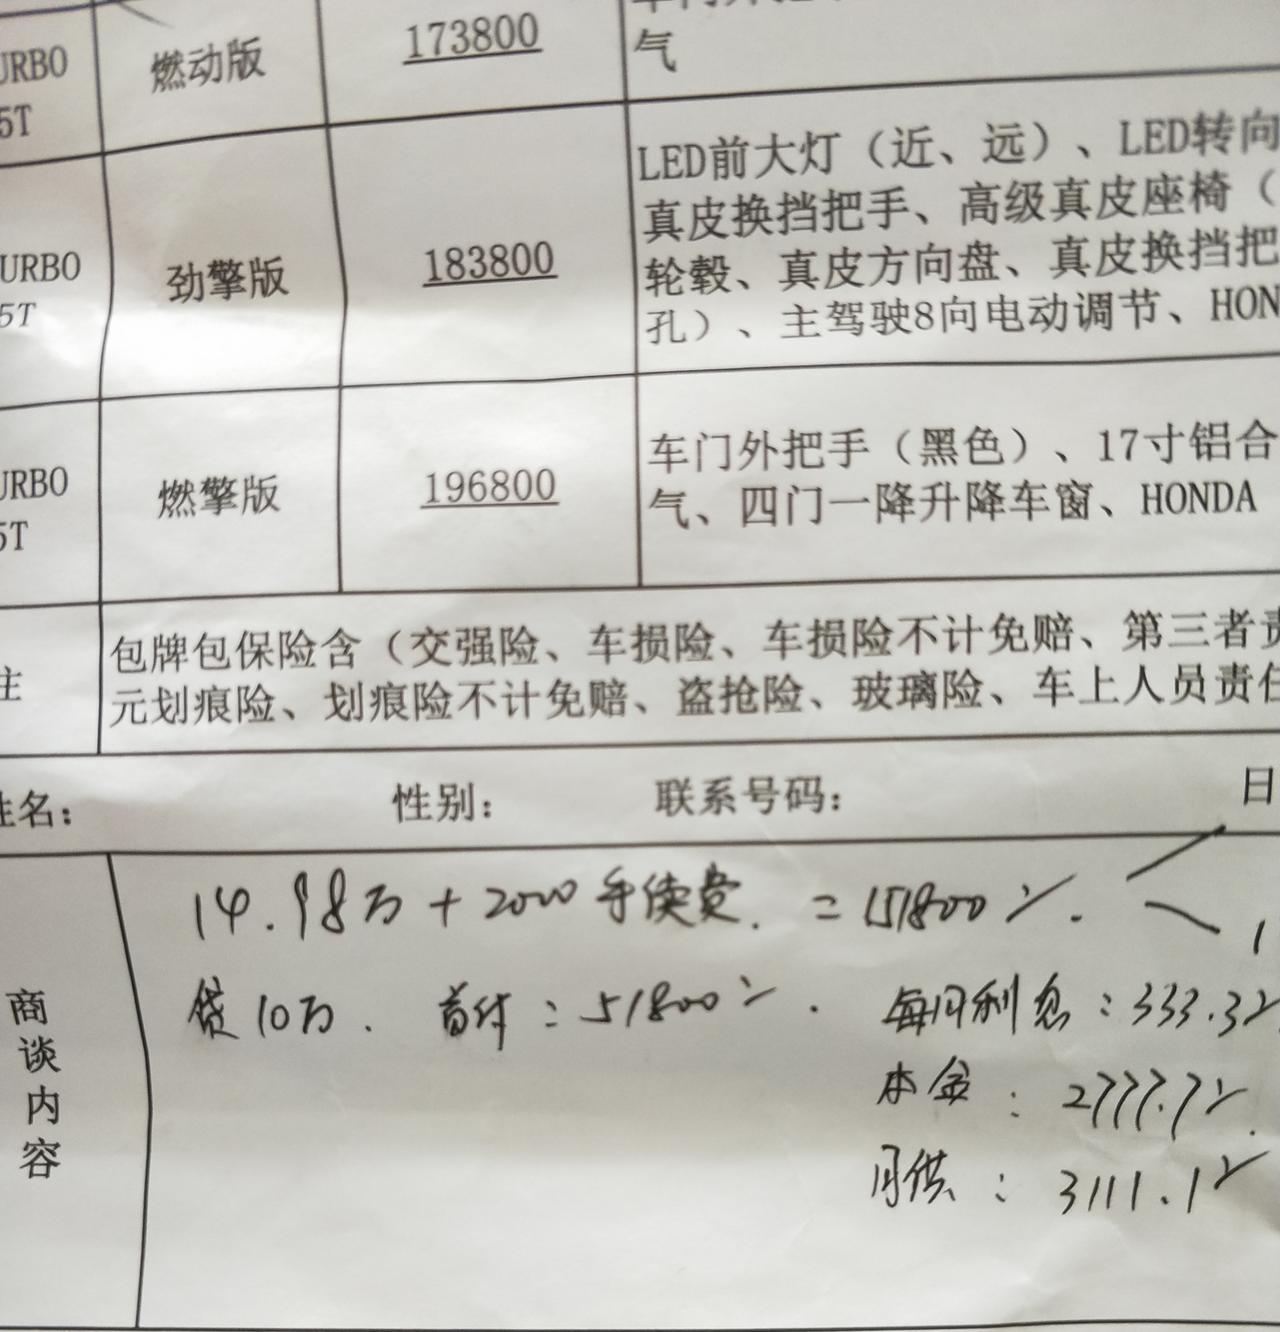 URBO 燃动版 173800 气
5T
LED前大灯（近、远）、LED转向
真皮换挡把手、高级真皮座椅（
URBO 劲擎版 183800 轮毂、真皮方向盘、真皮换挡把
5T 孔）、主驾驶8向电动调节、HON
车门外把手（黑色）、17寸铝合
URBO 燃擎版 196800 气、四门一降升降车窗、HONDA
5T
包牌包保险含（交强险、车损险、车损险不计免赔、第三者责
注 元划痕险、划痕险不计免赔、盗抢险、玻璃险、车上人员责任
姓名： 性别： 联系号码： 日
商谈内容
14.98万+2000手续费.=151800元.
贷10万. 首付：51800元. 每月利息：333.3元
本金：2777.7元.
月供：3111.1元